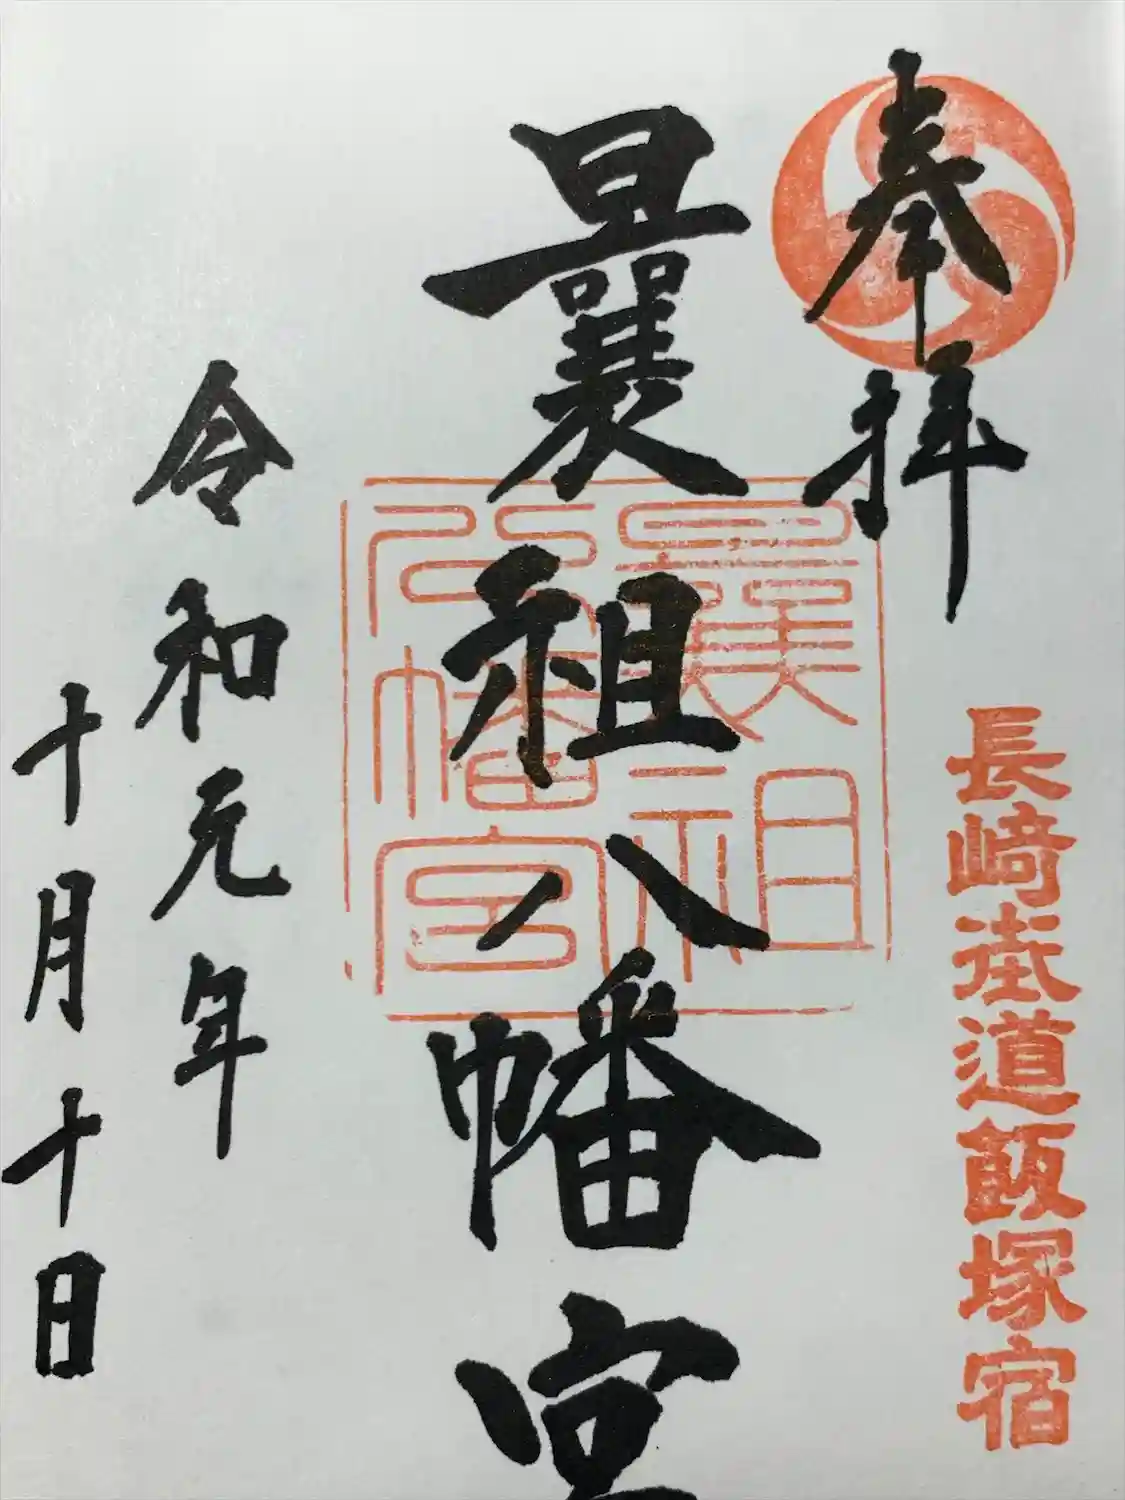 奉拝
長﨑街道飯塚宿
曩祖八幡宮
曩祖
八幡宮
令和元年
十月十日